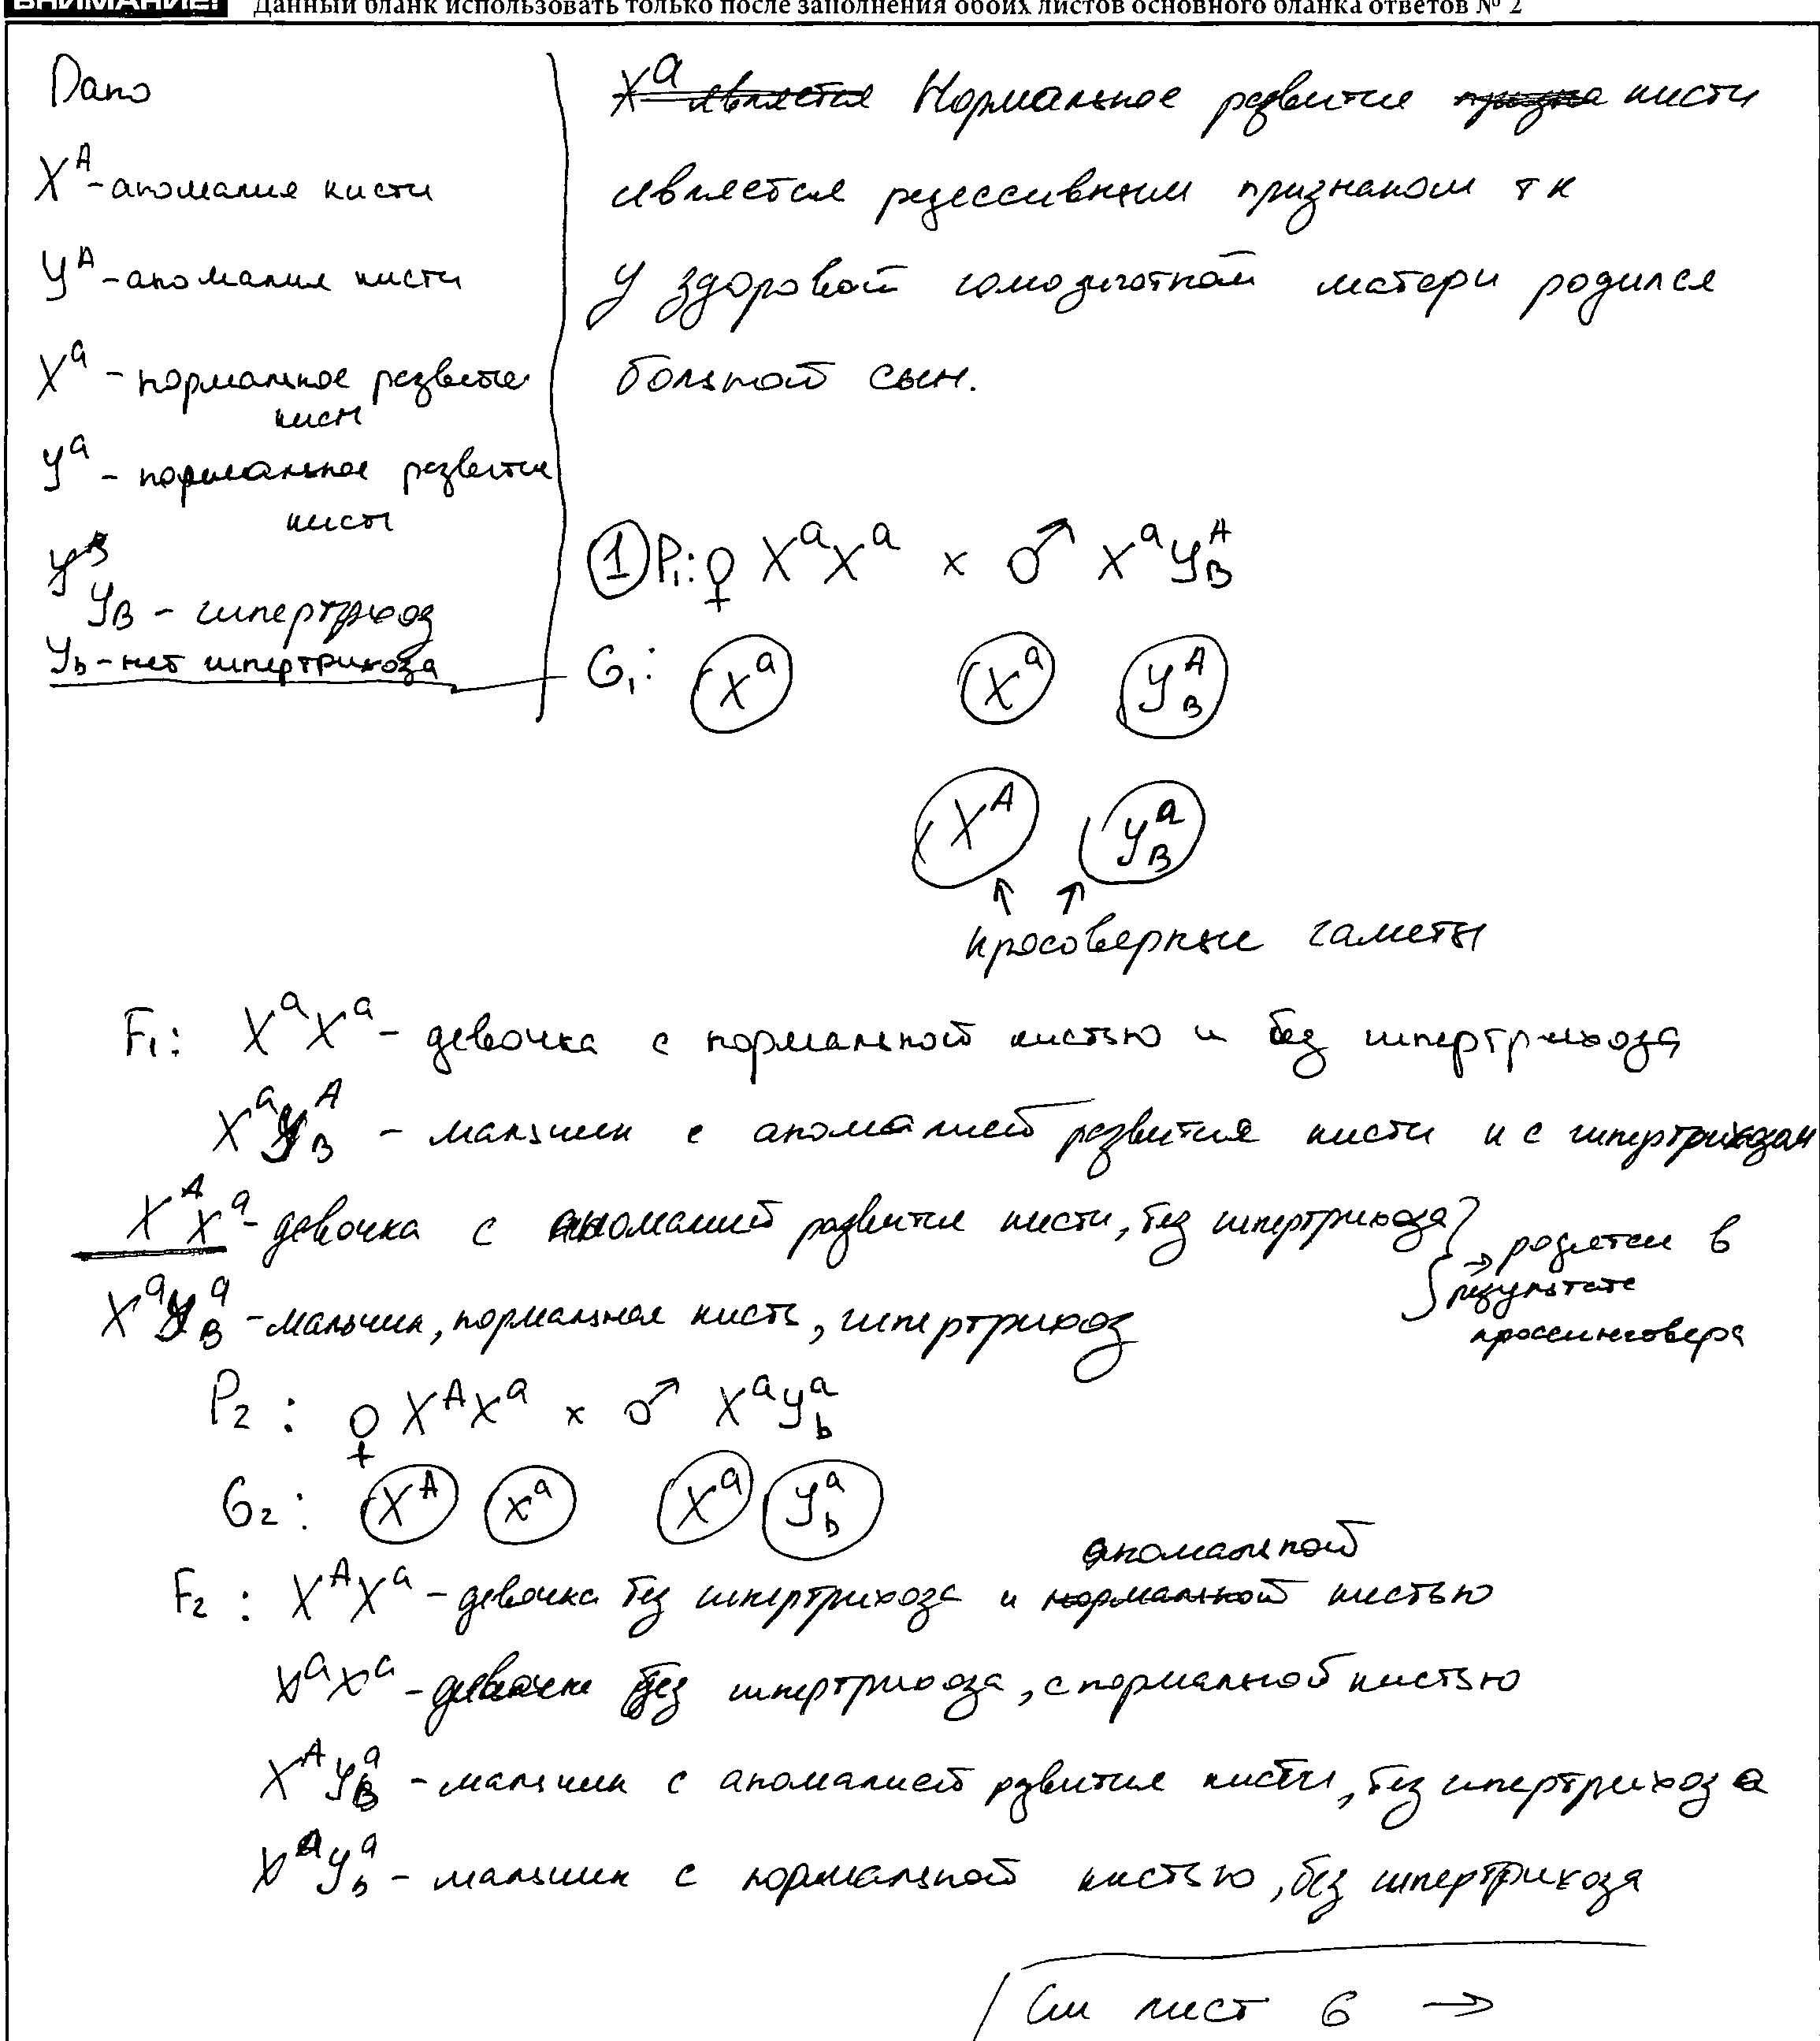 ВНИМАНИЕ! Данный бланк использовать только после заполнения обоих листов основного бланка ответов № 2
Дано
X^A - аномалия кисти
У^A - аномалия кисти
X^a - нормальное развитие кисти
У^a - нормальное развитие кисти
У^B
У_B - гипертрихоз
У_b - нет гипертрихоза
X^a является Нормальное развитие кисти
является рецессивным признаком тк
у здоровой гомозиготной матери родился
больной сын.
① P₁: ♀ X^a X^a × ♂ X^a У^A_B
G₁: X^a X^a У^A_B
X^A У^a_B
↑ ↑
кросоверные гаметы
F₁: X^a X^a - девочка с нормальной кистью и без гипертрихоза
X^a У^A_B - мальчик с аномалией развития кисти и с гипертрихозом
X^A X^a - девочка с аномалией развития кисти, без гипертрихоза
X^a У^a_B - мальчик, нормальная кисть, гипертрихоз
} → родятся в
результате
кроссинговера
P₂: ♀ X^A X^a × ♂ X^a У^a_b
G₂: X^A X^a X^a У^a_b
аномальной
F₂: X^A X^a - девочка без гипертрихоза и нормальной кистью
X^a X^a - девочка без гипертрихоза, с нормальной кистью
X^A У^a - мальчик с аномалией развития кисти, без гипертрихоза
У^a_b - мальчик с нормальной кистью, без гипертрихоза
См лист 6 →